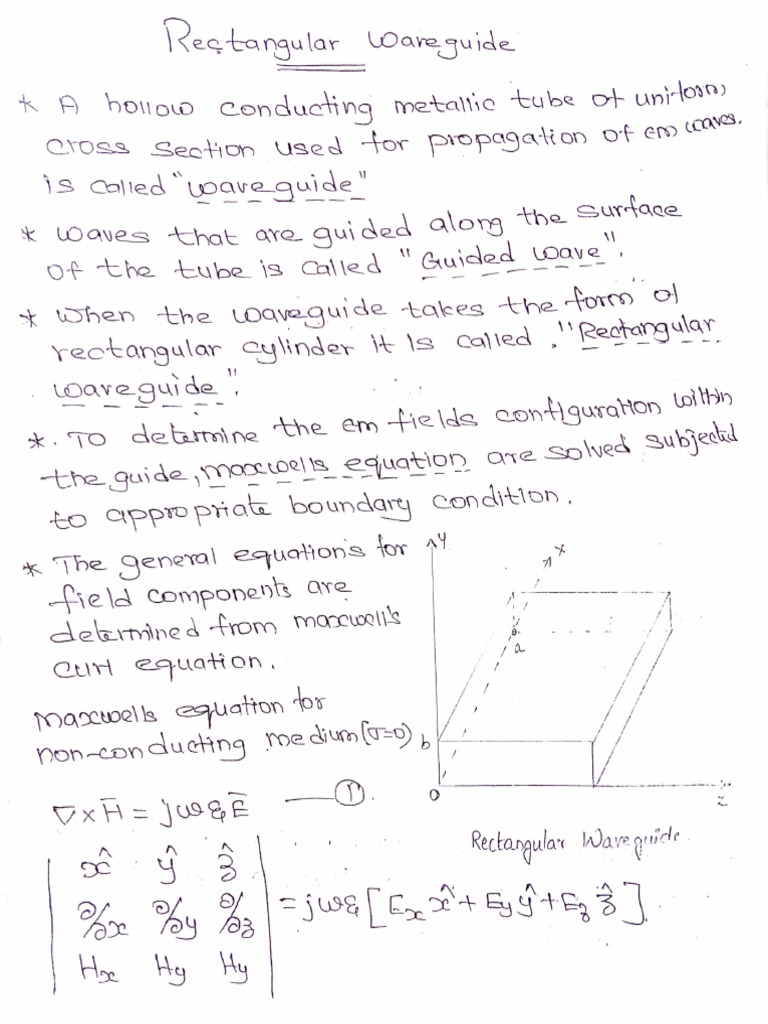 Rectangular Waveguide
* A hollow conducting metallic tube of uniform
cross section used for propagation of em waves.
is called "waveguide"
* waves that are guided along the surface
of the tube is called "Guided wave".
* When the waveguide takes the form of
rectangular cylinder it is called. "Rectangular
waveguide".
*. To determine the em fields configuration within
the guide, maxwells equation are solved subjected
to appropriate boundary condition.
* The general equation's for
field components are
determined from maxwell's
curl equation.
Maxwells equation for
non-conducting medium (σ=0)
∇×H̄ = jωε Ē —— ①
x̂ ŷ ẑ
∂/∂x ∂/∂y ∂/∂z = jωε [Ex x̂ + Ey ŷ + Ez ẑ].
Hx Hy Hy
y
x
a
b
0
z
Rectangular Waveguide.